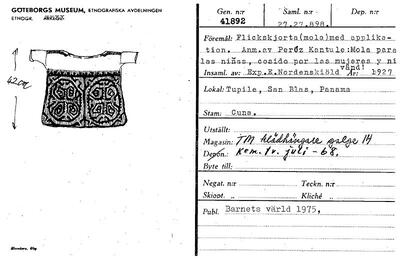 GÖTEBORGS MUSEUM, ETNOGRAFISKA AVDELNINGEN
ETNOGR.
42 cm
Gen. n:r Saml. n:r Dep. n:r
41892 27.27.898.
Föremål: Flickskjorta(mola)med applika-
tion. Anm.av Peréz Kantule:Mola para
las niñas, cosido por las mujeres y ni
vänd!
Insaml. av: Exp.E.Nordenskiöld År: 1927
Lokal: Tupile, San Blas, Panama
Stam: Cuna.
Utställt:
Magasin: TM klädhängare galge 14
Depon.: Kem.tv. juli -68.
Byte till:
Negat. n:r Teckn. n:r
Skiopt. n:r Kliché
Publ. Barnets värld 1975,